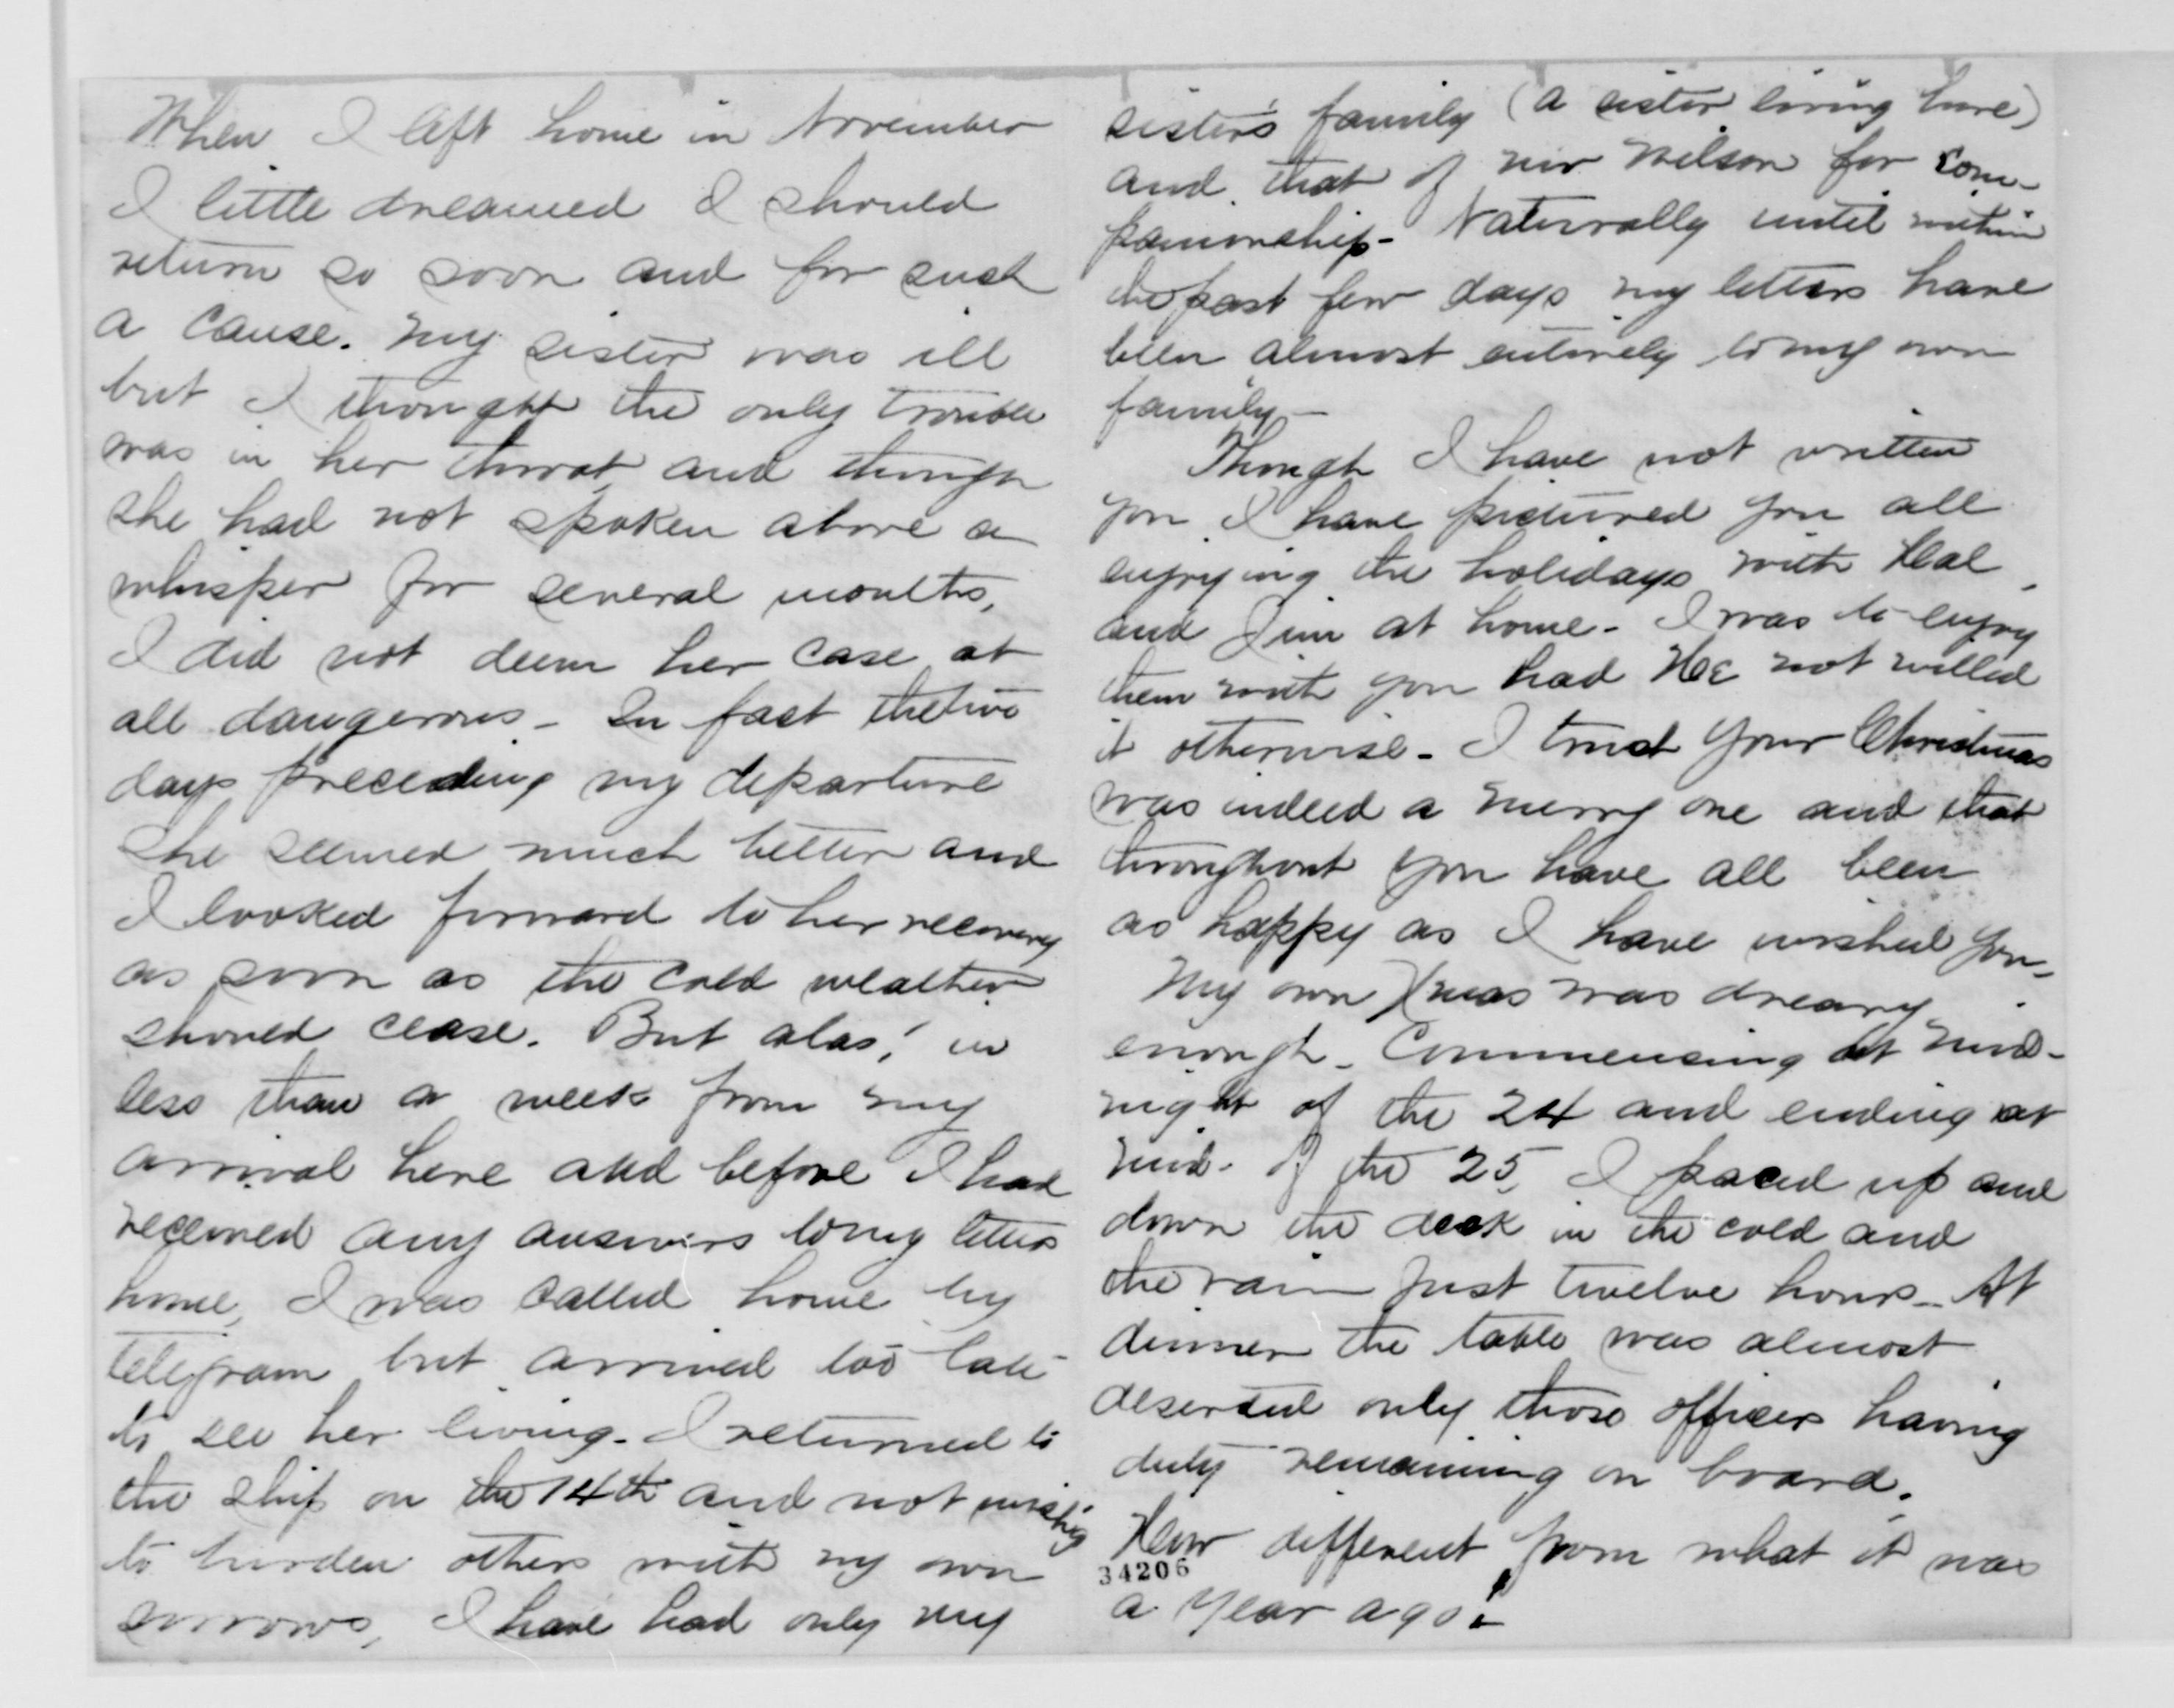 When I left home in November
I little dreamed I should
return so soon and for such
a cause. My sister was ill
but I thought the only trouble
was in her throat and though
she had not spoken above a
whisper for several months,
I did not deem her case at
all dangerous - In fact the two
days preceding my departure
she seemed much better and
I looked forward to her recovery
as soon as the cold weather
should cease. But alas! in
less than a week from my
arrival here and before I had
received any answers to my letters
home, I was called home by
telegram but arrived too late
to see her living - I returned to
the ship on the 14th and not wishing
to burden others with my own
sorrows, I have had only my
sister's family (a sister living here)
and that of Mr Wilson for com-
panionship - Naturally until within
the past few days my letters have
been almost entirely to my own
family -
Though I have not written
you I have pictured you all
enjoying the holidays with Hal
and Jim at home - I was to enjoy
them with you had He not willed
it otherwise - I trust your Christmas
was indeed a merry one and that
throughout you have all been
as happy as I have wished you -
My own Xmas was dreary
enough - Commencing at mid-
night of the 24 and ending at
mid- of the 25, I paced up and
down the deck in the cold and
the rain just twelve hours - At
dinner the table was almost
deserted only those officers having
duty remaining on board.
How different from what it was
34206
a year ago! -